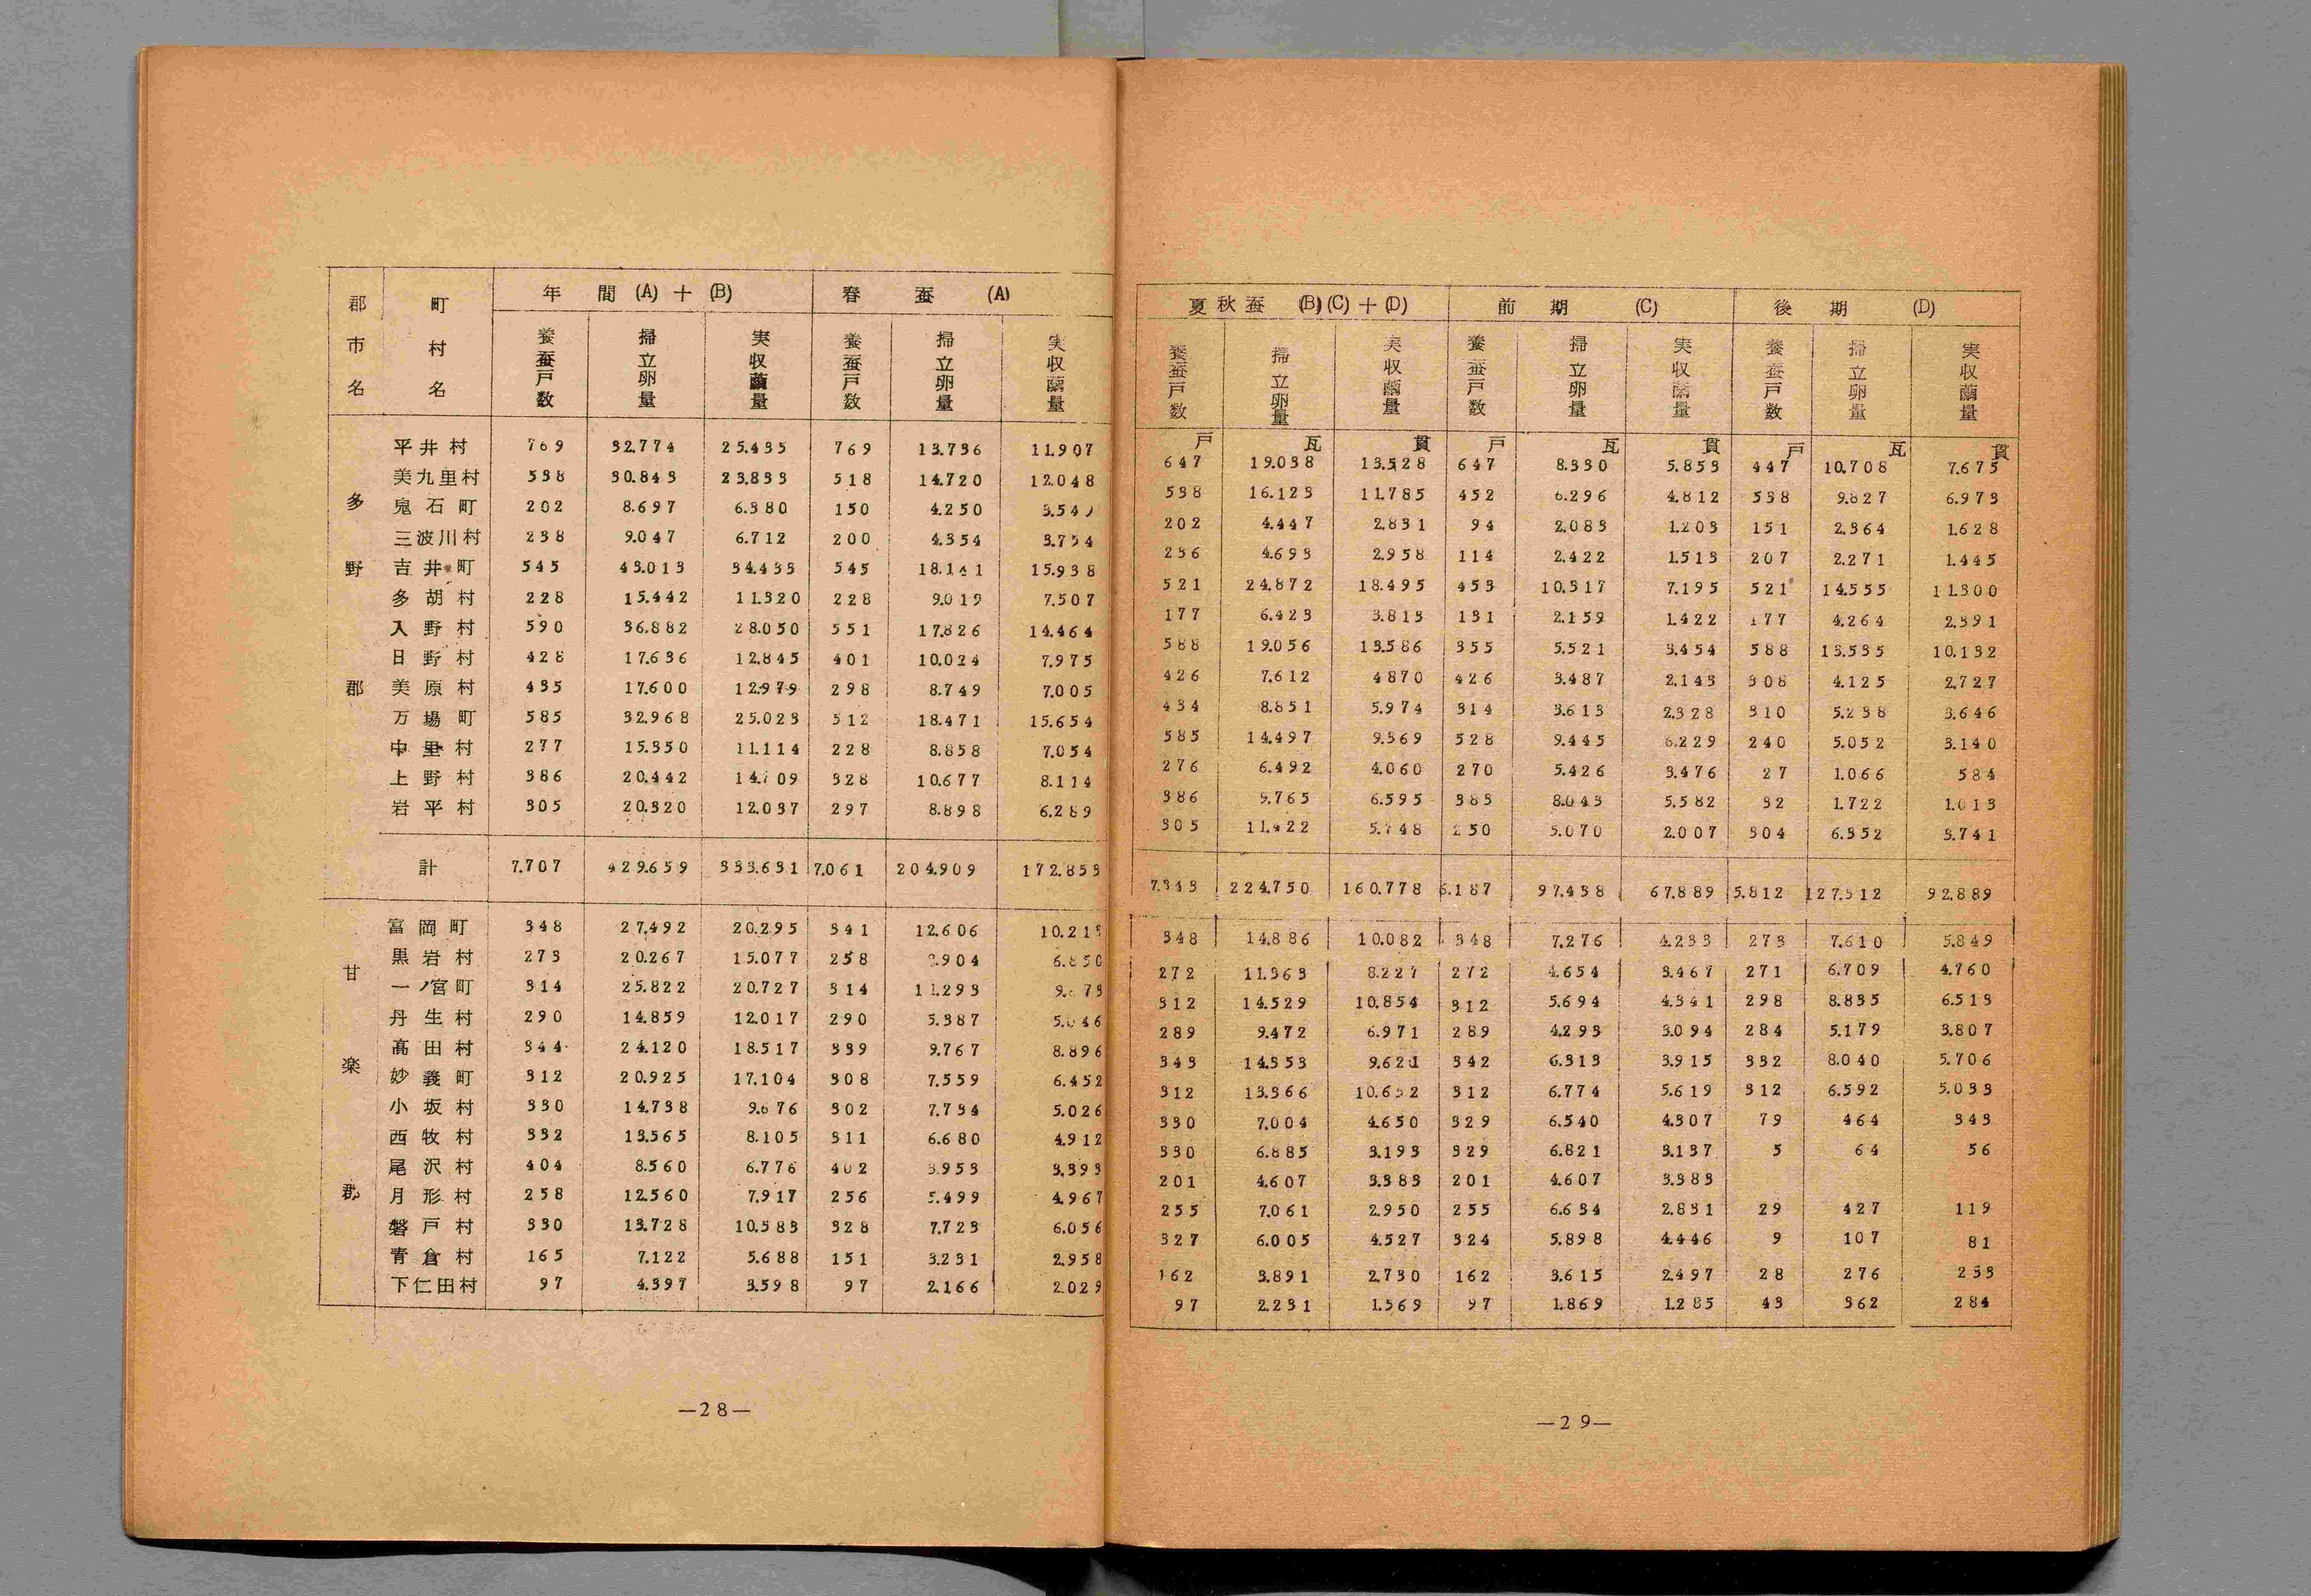 郡市名 町村名 年間 (A) + (B) 春蚕 (A)
養蚕戸数 掃立卵量 実収繭量 養蚕戸数 掃立卵量 実収繭量
多野郡
平井村 769 32.774 25.435 769 13.736 11.907
美九里村 538 30.843 23.833 518 14.720 12.048
鬼石町 202 8.697 6.380 150 4.250
三波川村 238 9.047 6.712 200 4.354 3.754
吉井町 545 43.013 34.433 545 18.141 15.938
多胡村 228 15.442 11.320 228 9.019 7.507
入野村 590 36.882 28.050 551 17.826 14.464
日野村 428 17.636 12.845 401 10.024 7.975
美原村 435 17.600 12.979 298 8.749 7.005
万場町 585 32.968 25.023 512 18.471 15.654
中里村 277 15.350 11.114 228 8.858 7.054
上野村 386 20.442 14.709 328 10.677 8.114
岩平村 305 20.320 12.037 297 8.898 6.289
計 7.707 429.659 333.631 7.061 204.909 172.853
甘楽郡
富岡町 348 27.492 20.295 341 12.606
黒岩村 273 20.267 15.077 258 8.904 6.850
一ノ宮町 314 25.822 20.727 314 11.293
丹生村 290 14.859 12.017 290 5.387 5.046
高田村 344 24.120 18.517 339 9.767 8.896
妙義町 312 20.925 17.104 308 7.559 6.452
小坂村 330 14.738 9.676 302 7.734 5.026
西牧村 332 13.565 8.105 311 6.680 4.912
尾沢村 404 8.560 6.776 402 3.953 3.393
月形村 258 12.560 7.917 256 5.499 4.967
磐戸村 330 13.728 10.583 328 7.723 6.056
青倉村 165 7.122 5.688 151 3.231 2.958
下仁田村 97 4.397 3.598 97 2.166 2.029
—28—
夏秋蚕 (B)(C)+(D) 前期 (C) 後期 (D)
養蚕戸数 掃立卵量 実収繭量 養蚕戸数 掃立卵量 実収繭量 養蚕戸数 掃立卵量 実収繭量
戸 瓦 貫 戸 瓦 貫 戸 瓦 貫
647 19.038 13.528 647 8.330 5.853 447 10.708 7.675
538 16.123 11.785 452 6.296 4.812 538 9.827 6.973
202 4.447 2.831 94 2.083 1.203 151 2.364 1.628
236 4.693 2.958 114 2.422 1.513 207 2.271 1.445
521 24.872 18.495 453 10.317 7.195 521 14.555 11.300
177 6.423 3.813 131 2.159 1.422 177 4.264 2.391
588 19.056 13.586 355 5.521 3.454 588 13.535 10.132
426 7.612 4870 426 3.487 2.143 308 4.125 2.727
434 8.851 5.974 314 3.613 2.328 310 5.238 3.646
585 14.497 9.369 528 9.445 6.229 240 5.052 3.140
276 6.492 4.060 270 5.426 3.476 27 1.066 584
386 9.765 6.595 383 8.043 5.582 32 1.722 1.013
305 11.422 5.748 250 5.070 2.007 304 6.352 3.741
7.343 224.750 160.778 6.187 97.438 67.889 5.812 127.312 92.889
348 14.886 10.082 348 7.276 4.233 273 7.610 5.849
272 11.363 8.227 272 4.654 3.467 271 6.709 4.760
312 14.529 10.854 312 5.694 4.341 298 8.835 6.513
289 9.472 6.971 289 4.293 3.094 284 5.179 3.807
343 14.353 9.621 342 6.313 3.915 332 8.040 5.706
312 13.366 10.652 312 6.774 5.619 312 6.592 5.033
330 7.004 4.650 329 6.540 4.307 79 464 343
330 6.885 3.193 329 6.821 3.137 5 64 56
201 4.607 3.383 201 4.607 3.383
255 7.061 2.950 255 6.634 2.831 29 427 119
327 6.005 4.527 324 5.898 4.446 9 107 81
162 3.891 2.730 162 3.615 2.497 28 276 233
97 2.231 1.569 97 1.869 1.285 43 362 284
—29—